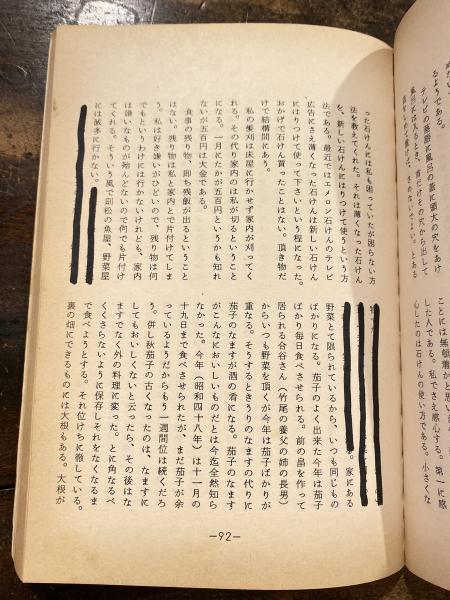 るようである。
風呂には入るとき、首だけその穴から出して
ことには無頓着かと思いま
した人である。私でさえ感心する。第一に感
心したのは石けんの使い方である。小さくな
った石けんには私も困っていたが困らない方
法を教えてくれた。それは薄くなった石けん
を、新しい石けんにはりつけて使うという方
法である。最近ではエメロン石けんのテレビ
広告にさえ薄くなった石けんは新しい石けん
にはりつけて使って下さいという程になった。
おかげで石けん買ったことはない。頂き物だ
けで結構間にあう。
私の髪刈は床屋に行かず家内が刈ってく
れる。その代り家内のは私が切るということ
になる。一月にたかが五百円というかも知れ
ないが五百円は大金である。
食事の残り物、即ち残飯が出るということ
はない。残り物は私と家内とで片付けてしま
う。私は好き嫌いがひどいので、残り物は何
でもというわけには行かないけれども、家内
は嫌いなものが殆んどないので何でも片付け
てくれる。そういう風で別松の魚屋、野菜屋
には滅多に行かない。
家にある
野菜とて限られているから、いつも同じもの
ばかりになる。茄子のよく出来た今年は茄子
ばかり毎日食べさせられる。前の畠を作って
居られる合谷さん（竹尾の養父の姉の長男）
からいつも野菜を頂くが今年は茄子ばかりが
重なる。そうするときうりのなますの代りに
茄子のなますが酒の肴になる。茄子のなます
がこんなにおいしいものだとは今迄全然知ら
なかった。今年（昭和四十八年）は十一月の
十九日まで食べさせられたが、まだ茄子が余
っているようだからもう一週間位は続くだろ
う。併し秋茄子の古くなったのは、なますに
してもおいしくないと云ったら、その後はな
ますでなく外の料理に変った。とに角なるべ
くくさらないように保存しそれをなくなるま
で食べようとする。それ位に徹している。
裏の畑にできるものには大根もある。大根が
—92—